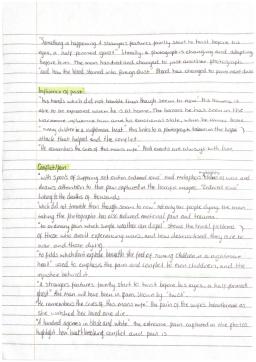 "Something is happening. A stranger's features faintly start to twist before his
eyes, a half formed ghost" Literally a photograph is changing and adapting
before him. The man
and how the blood stained into foreign dust" Blood has changed to
Influence of past:
"his hands which did not tremble then though seem to now" His trauma is
able to be expressed when he is at home. The horrors he has seen in the
warzone influence him and his emotional state, when he thinks back.
"running children in a nightmare heat" this links to a photograph taken on the
attack that helped end the conflict
"He remembers the cries of this man's wife" Past events are always with him
Conflict/Pain:
"with spools of suffering set out in ordered rows" and metaphors of war and
draws attention to the pain captured in the images. "Ordered rows"
linking to the deaths of thousands
which did not tremble then though seem to now" not only are people dying the man
taking the photographs has also endured emotional pain and trauma.
"to ordinary pain which simple weather can dispel" shows the trivial problems
of those who aren't experiencing wars, and how desensitised they are to
war and those dying.
"to fields which don't explode beneath the feet of running children in a nightmare
heat" used to emphasis the pain and conflict to even children, and the
injustice behind it
"A stranger's features faintly start to twist before his eyes, a half formed
ghost" the man will have been in pain, shown by "twist".
"he remembers the cries of this man's wife" the pain of the wife's heartbreak as
she watched her loved one die.
"A hundred agonies in black and white" the extreme pain captured in the photos
highlight how heartbreaking conflict and pain is